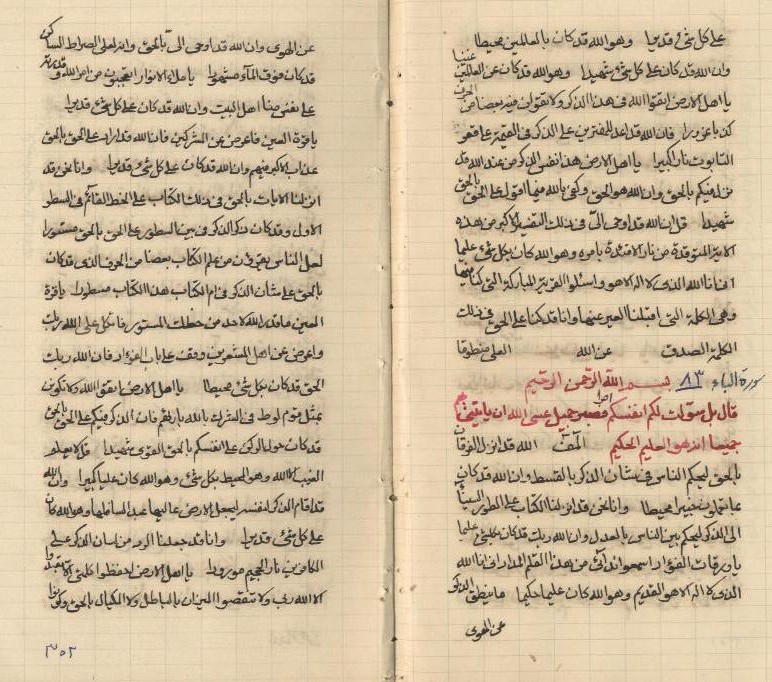 على كل شيء قديرا وهو الله قد كان بالعالمين محيطا
وان الله قد كان على كل شيء شهيدا وهو الله قد كان عن العالمين غنيا
يا اهل الارض اتقوا الله في هذا الذكر ولا تقولن فيه بعضا من الحرف
فان الله قد اعد للمفترين على الذكر في القيمة على قعر
التابوت نارا كبيرا يا اهل الارض هذا نفس الذكر من عند الله قد
نزل فيكم بالحق وان الله هو الحق وكفى بالله فيما اقول على الحق بالحق
شهيدا قل ان الله قد اوحى الي في ذلك الاكبر من هذه
المتوقدة من نار الافئدة بامره وهو الله كان بكل شيء عليما
انني انا الله الذي لا اله الا هو واسئلوا القرية المباركة التي كنا فيها
وهي الكلمة التي اقبلنا العير عنها وانا قد كنا على الحق في تلك
الكلمة الصدق عن الله العلي منطوقا
سورة الباء ٨٣ بسم الله الرحمن الرحيم
قال بل سولت لكم انفسكم امرا فصبر جميل عسى الله ان ياتيني بهم
جميعا انه هو العليم الحكيم الله قد انزل الفرقان
بالحق ليحكم الناس في شان الذكر بالقسط وان الله قد كان
بما تعملون خبيرا محيطا وانا نحن قد انزلنا الكتاب على الطور السيناء
الى الذكر ليحكم بين الناس بالعدل وان الله ربك قد كان بكل شيء عليما
يا ورقات الفؤاد اسمعوا ندائي من هذا القلم المداد اني انا الله
الذي لا اله الا هو القديم وهو الله كان عليما حكيما ما ينطق الذكر
عن الهوى
عن الهوى وان الله قد اوحى الي بالحق وانه لعلى الصراط الساكن
قد كان فوق المآء مشهودا يا ملاء الانوار اتعجبون من امر الله وقدرته
على نفس منا اهل البيت وان الله قد كان على كل شيء قديرا
يا قرة العين فاعرض عن المشركين فان الله قد اراد على الحق بالحق
عذاب الاكبر فيهم وان الله قد كان على كل شيء قديرا وانا نحن قد
انزلنا الايات بالحق في ذلك الكتاب على الخط القائم في السطر
الاول وقد كان ذكر الذكر في بين السطور على الحق بالحق مستورا
لعل الناس يعرفون من علم الكتاب بعضا من الحرف الذي قد كان
بالحق على شان الذكر في ام الكتاب هذا الكتاب مسطورا يا قرة
العين ما قدر الله لاحد من حظك المستور فاتكل على الله ربك
واعرض عن اهل المشعرين وقف على باب الفؤاد فان الله ربك
الحق قد كان بكل شيء محيطا يا اهل الارض اتقوا الله ولا تكونن
بمثل قوم لوط في الشرك بالله بارئكم فان الذكر فيكم على الحق بالحق
قد كان حول الذكر على انفسكم بالحق القوي شهيدا قل لا يعلم
الغيب الا الله وهو المحيط بكل شيء وهو الله كان عليا كبيرا وان الله
قد اقام الذكر لنفسه ليجعل الارض عاليها عند السافلها وهو الله كان
على كل شيء قديرا وانا قد جعلنا الرد من لسان الذكر على
الكافرين نار الجحيم مورودا يا اهل الارض احفظوا كلمتي لا تعبدوا
الا الله ربي ولا تنقصوا الميزان بالباطل ولا الكيال بالحق وكونوا
٣٠٢